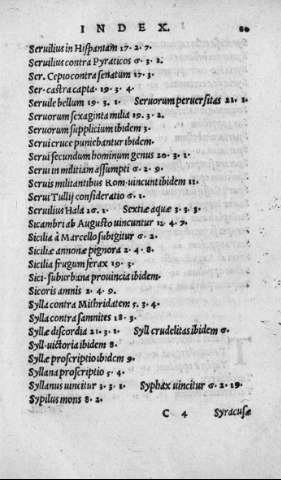 INDEX. 60
Seruilius in Hispaniam 17. 2. 7.
Seruilius contra Pyraticos 6. 3. 2.
Ser. Cepio contra senatum 17. 3.
Ser. castra capta. 19. 3. 4.
Seruile bellum 19. 3. 1. Seruorum peruersitas 21. 1.
Seruorum sexaginta milia 19. 3. 2.
Seruorum supplicium ibidem 3.
Serui cruce puniebantur ibidem.
Serui secundum hominum genus 20. 3. 1.
Serui in militiam assumpti 6. 2. 9.
Seruis militantibus Rom. uincunt ibidem 11.
Serui Tullij consideratio 6. 1.
Seruilius Hala 26. 1. Sextiæ aquæ 3. 3. 3.
Sicambri ab Augusto uincuntur 12. 4. 7.
Sicilia à Marcello subigitur 6. 2.
Siciliæ annonæ pignora 2. 4. 8.
Sicilia frugum ferax 19. 3.
Sici. suburbana prouincia ibidem.
Sicoris amnis 2. 4. 9.
Sylla contra Mithridatem 5. 3. 4.
Sylla contra samnites 18. 3.
Syllæ discordia 21. 3. 1. Syll crudelitas ibidem 6.
Syll. uictoria ibidem 8.
Syllæ proscriptio ibidem 9.
Syllana proscriptio 5. 4.
Syllanus uincitur 3. 3. 1. Syphax uincitur 6. 2. 19.
Sypilus mons 8. 2.
C 4 Syracusæ